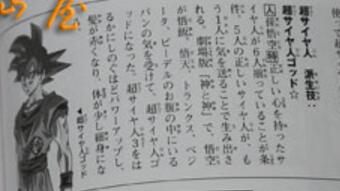 超サイヤ人 派生技:
超サイヤ人ゴッド☆
人 孫悟空 種 正しい心を持ったサ
イヤ人が6人揃っていることが条
件。5人の正しいサイヤ人が、も
う1人に気を送ることで生み出さ
れる。劇場版『神と神』で、悟空
が悟飯、悟天、トランクス、ベジ
ータ、ビーデルのお腹の中にいる
パンの気を受けて、超サイヤ人ゴ
ッドになった。超サイヤ人3をは
るかにしのぐほどパワーアップし、
髪が赤くなり、体が少し細身にな
◀超サイヤ人ゴッド